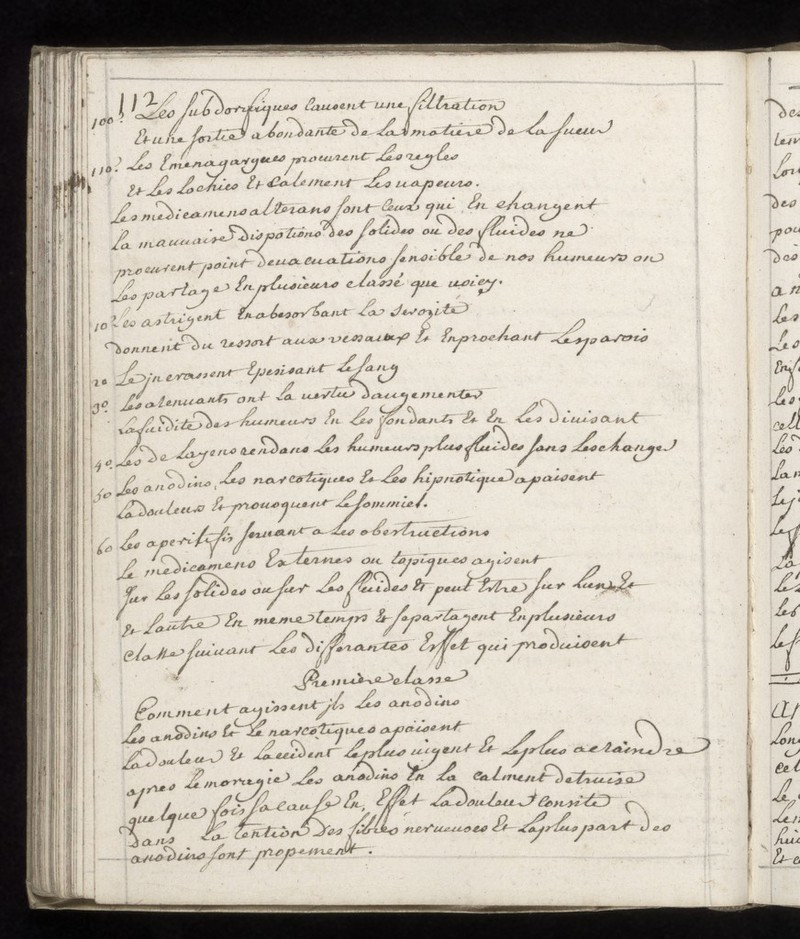 112
10o? Les subdorifiques Causent une filtration
Et une sortie abondante de La matiere de La sueur
11o? Les Emenagargues procurent Les regles
Et Les Lochies Et Calement Les uapeurs.
Les medicamens alterans sont Ceux qui En changent
La mauuaise dispotions des solides ou des fluides ne
procurent point deuacuations sensible de nos humeurs on
Les partage En plusieurs classé que uoicy.
1o Les astrigent En abesorbant La serozité
donnent du ressort aux vessaux Et En prochant Les parois
2o Le jncrassent Epesisant Le sang
3o Les atenuants ont La uertu daugementer
La fuidite des humeurs En Les fondants Et En Les diuisant
4o Les de Layens rendans Les humeurs plus fluides sans Les changer
5o Les anodins, Les narcotiques Et Les hipnotique apaisent
La douleurs Et prouoquent Le sommiel.
6o Les aperitifis seruant a Les obestructions
Le medicamens Externes ou topiques agisent
sur Les solides ou sur Les fluides Et peut Estre sur Lun Et
Et Lautre En meme temps Et se partagent En plusieurs
classe suiuant Les differantes Effet qui produisent
Premiere classe
Comment agissent jls Les anodins
Les anodins Et Le narcotiques apaisent
La douleur Et Laccident Le plus uigent Et Le plus a craindre
apres Lemorragie Les anodins En La calment detruise
quelque fois sa cause En, Effet La douleur Consite
Dans La tention Des fibres nerueuses Et La plus part des
anodins sont propement.